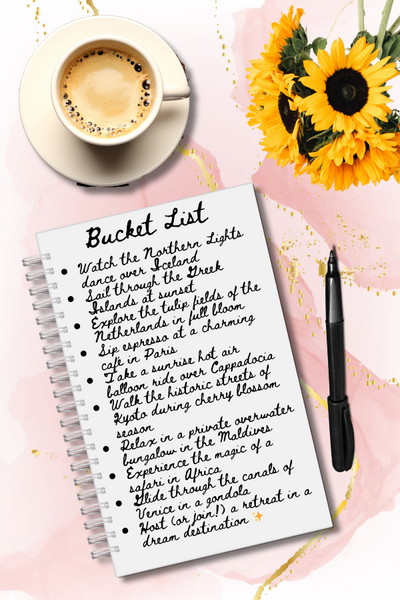 Bucket List
• Watch the Northern Lights
dance over Iceland
• Sail through the Greek
Islands at sunset
• Explore the tulip fields of the
Netherlands in full bloom
• Sip espresso at a charming
café in Paris
• Take a sunrise hot air
balloon ride over Cappadocia
• Walk the historic streets of
Kyoto during cherry blossom
season
• Relax in a private overwater
bungalow in the Maldives
• Experience the magic of a
safari in Africa
• Glide through the canals of
Venice in a gondola
• Host (or join!) a retreat in a
dream destination ✨